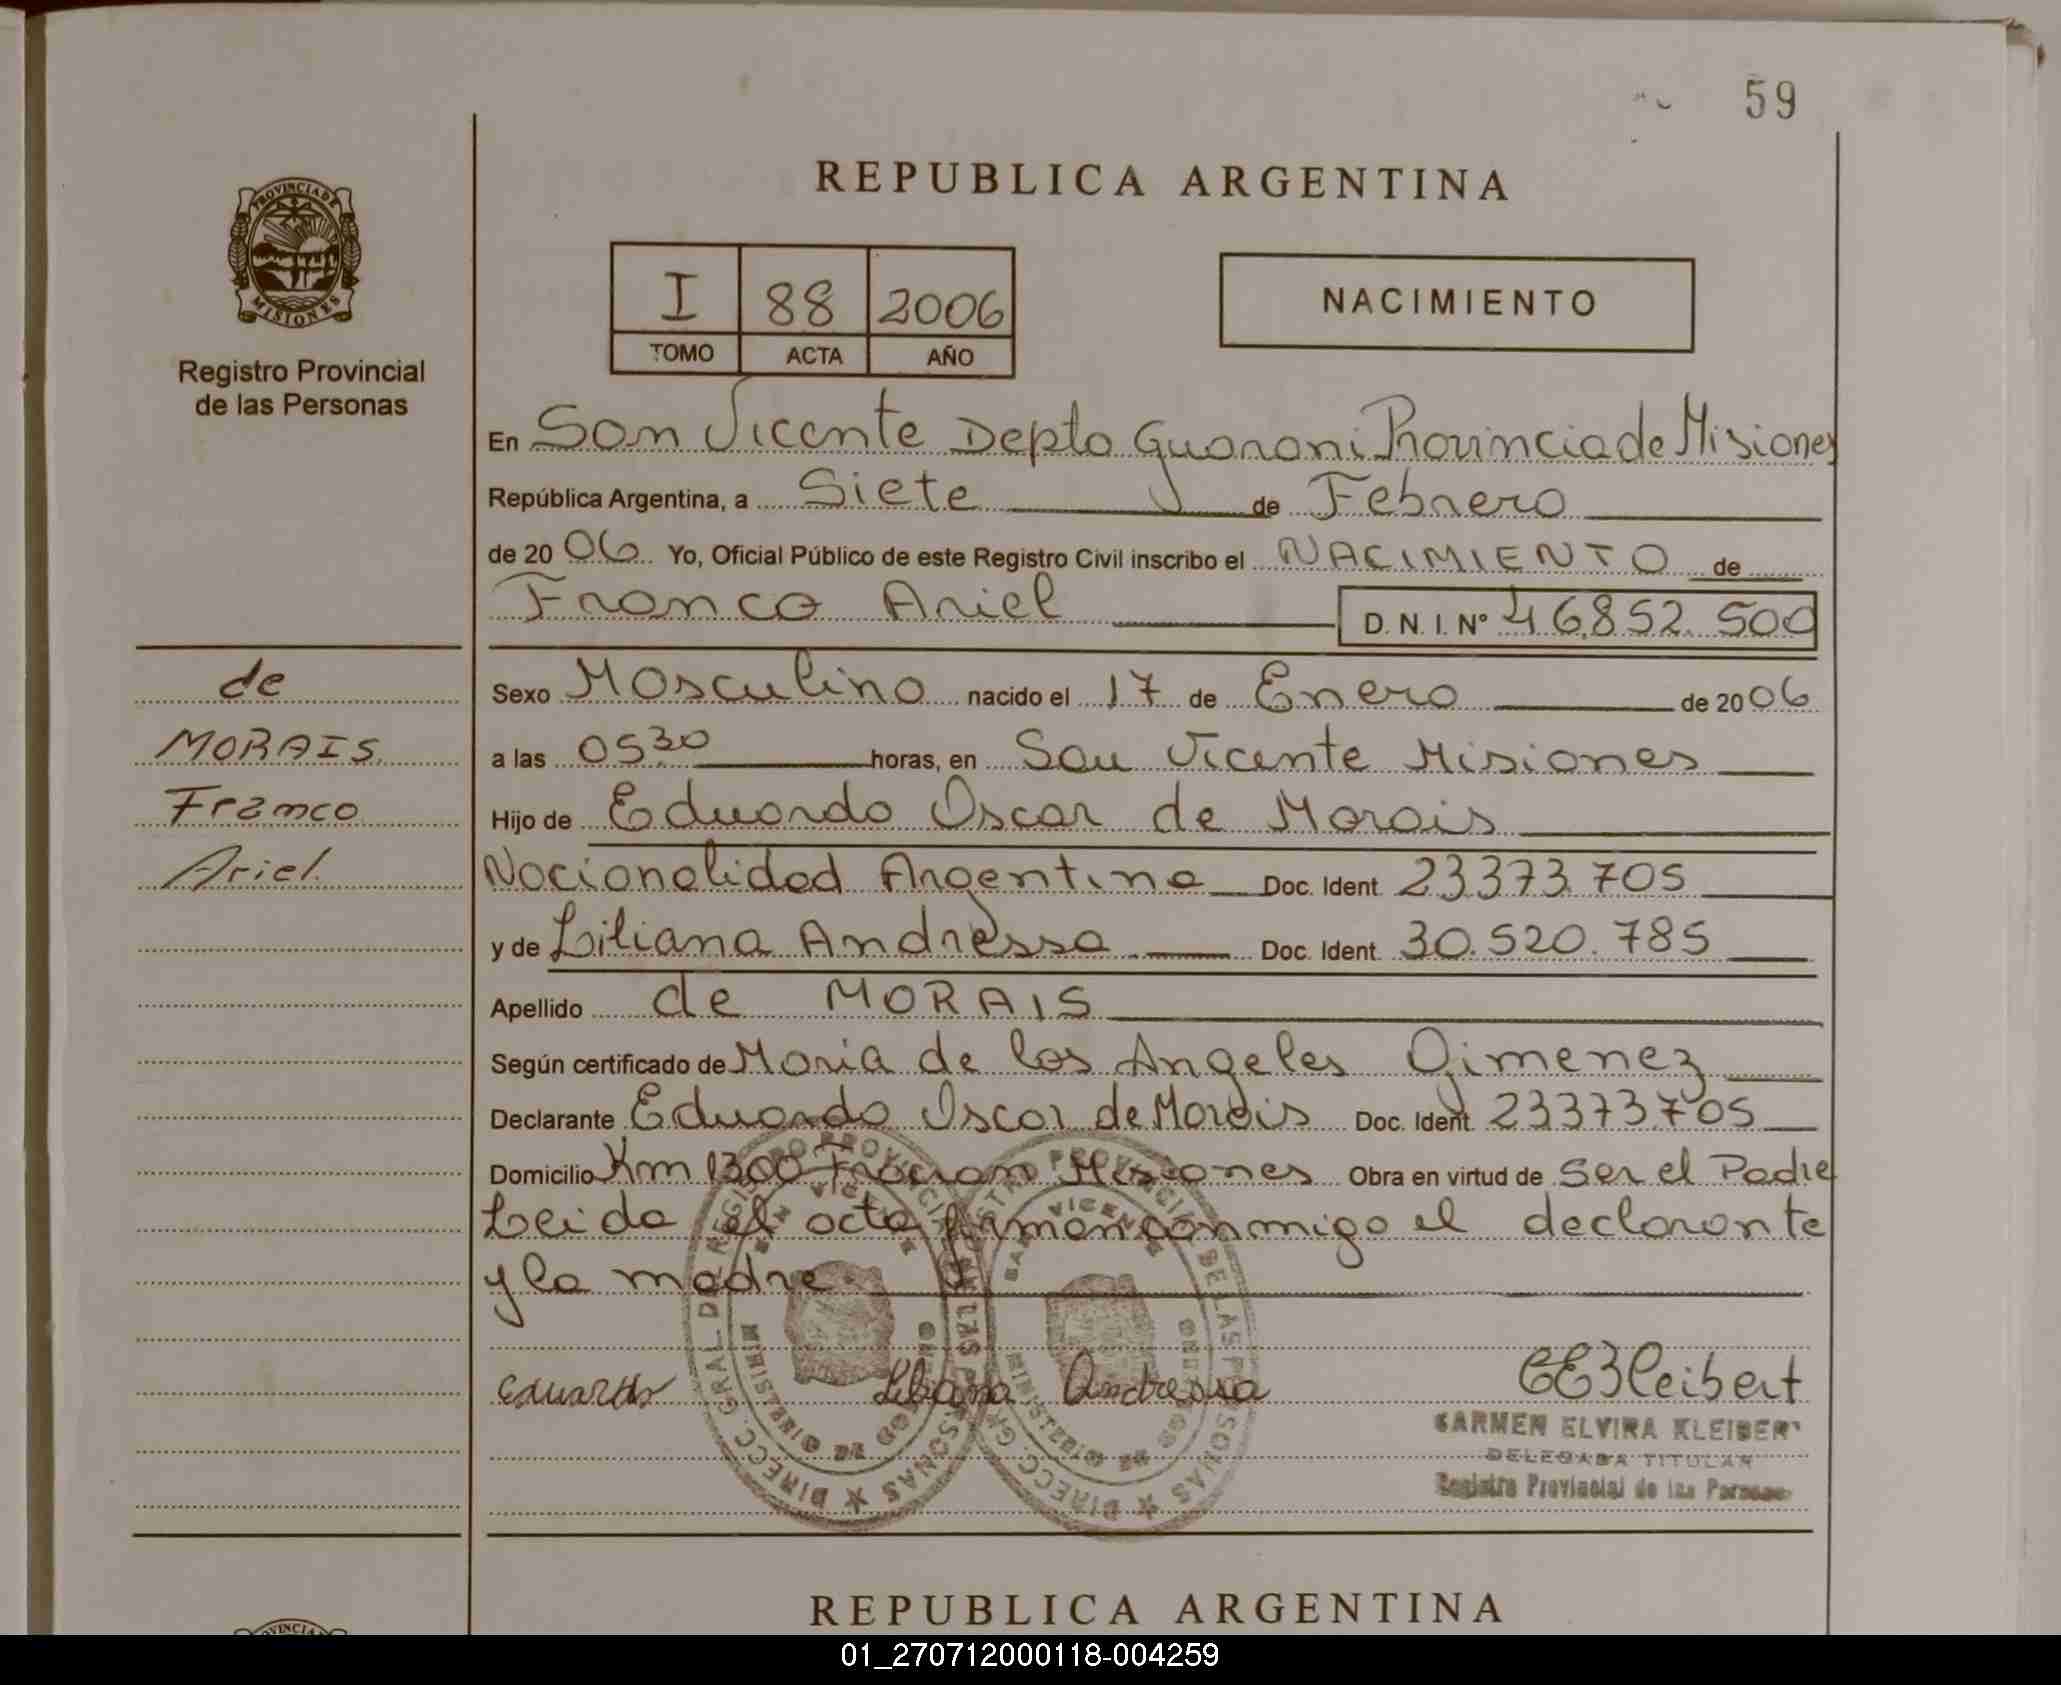 59
PROVINCIA DE
MISIONES
Registro Provincial
de las Personas
REPUBLICA ARGENTINA
I 88 2006
TOMO ACTA AÑO
NACIMIENTO
En San Vicente Depto Guarani Provincia de Misiones
República Argentina, a Siete de Febrero
de 2006 Yo, Oficial Público de este Registro Civil inscribo el NACIMIENTO de
Franco Ariel D. N. I. Nº 46.852.500
de
MORAIS
Franco
Ariel
Sexo Masculino nacido el 17 de Enero de 2006
a las 05.30 horas, en San Vicente Misiones
Hijo de Eduardo Oscar de Morais
Nacionalidad Argentina Doc. Ident. 23373.705
y de Liliana Andressa Doc. Ident. 30.520.785
Apellido de MORAIS
Según certificado de Maria de los Angeles Gimenez
Declarante Eduardo Oscar de Morais Doc. Ident. 23373.705
Domicilio Km 1300 Fracran Misiones Obra en virtud de Ser el Padre
Leida el acta firman conmigo el declarante
y la madre.
Eduardo Liliana Andressa CEKleibert
CARMEN ELVIRA KLEIBERT
DELEGADA TITULAR
Registro Provincial de las Personas
DIRECC. GRAL. DE REGISTRO PROVINCIAL DE LAS PERSONAS
SAN VICENTE
MINISTERIO DE GOBIERNO
DIRECC. GRAL. DE REGISTRO PROVINCIAL DE LAS PERSONAS
SAN VICENTE
MINISTERIO DE GOBIERNO
REPUBLICA ARGENTINA
01_270712000118-004259